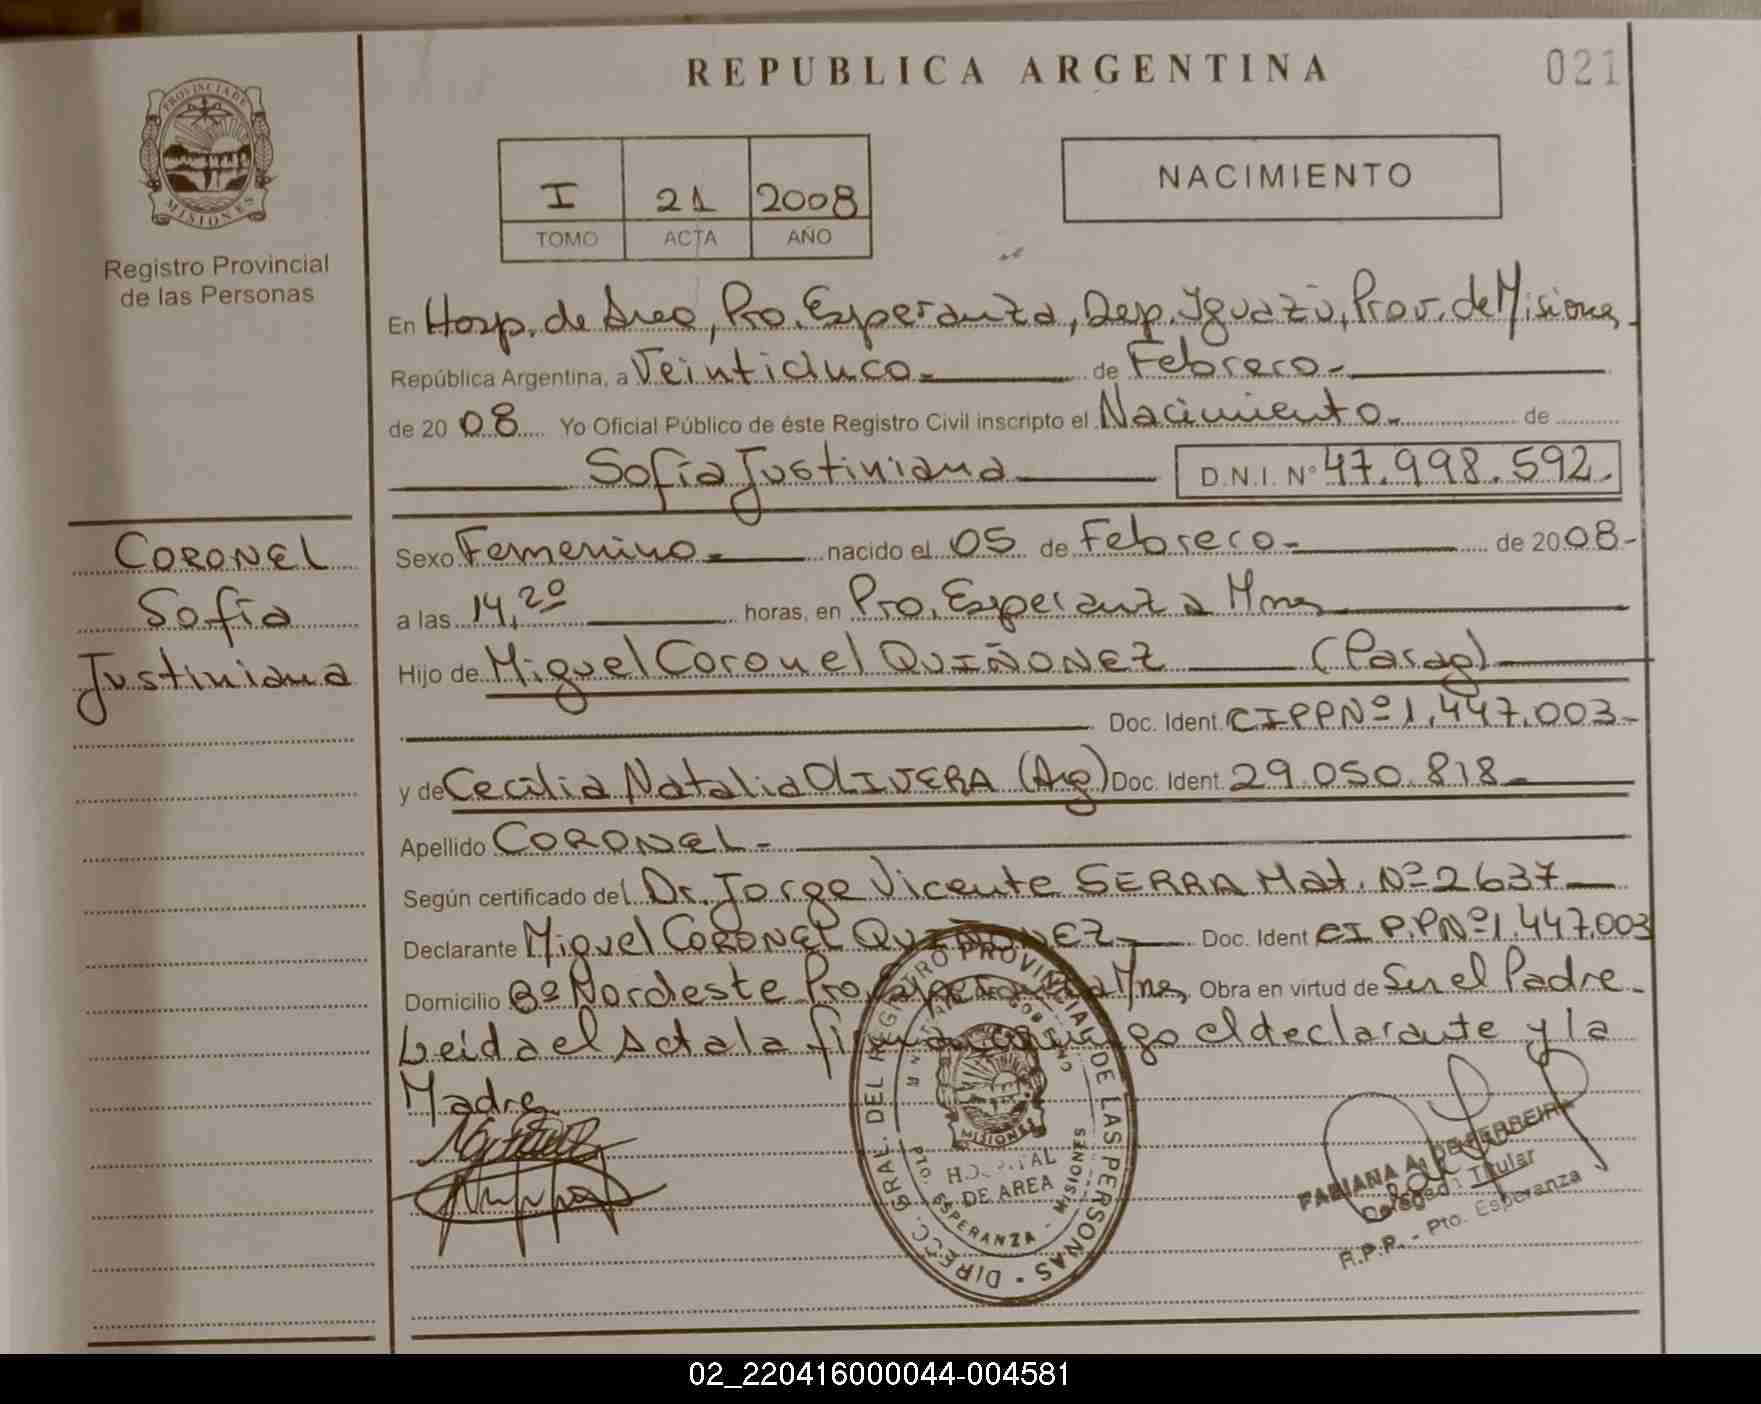 REPUBLICA ARGENTINA
021
PROVINCIA DE
MISIONES
Registro Provincial
de las Personas
I 21 2008
TOMO ACTA AÑO
NACIMIENTO
En Hosp. de Area, Pto. Esperanza, Dep. Iguazú, Prov. de Misiones
República Argentina, a Veinticinco de Febrero
de 2008 Yo Oficial Público de éste Registro Civil inscripto el Nacimiento de
Sofía Justiniana D.N.I. Nº 47.998.592.
CORONEL
Sofía
Justiniana
Sexo Femenino nacido el 05 de Febrero de 2008
a las 14,20 horas, en Pto. Esperanza Mnes
Hijo de Miguel Coronel QUIÑONEZ (Parag)
Doc. Ident. CIPPNº 1.447.003
y de Cecilia Natalia OLIVERA (Arg) Doc. Ident. 29.050.818
Apellido CORONEL
Según certificado del Dr. Jorge Vicente SERRA Mat. Nº 2637
Declarante Miguel CORONEL QUIÑONEZ Doc. Ident CI P.PNº 1.447.003
Domicilio Bº Nordeste Pto Esperanza Mnes, Obra en virtud de Ser el Padre
Leida el Acta la firma conmigo el declarante y la
Madre
DIRECC. GRAL. DEL REGISTRO PROVINCIAL DE LAS PERSONAS
MISIONES
HOSPITAL
DE AREA
PTO. ESPERANZA - MISIONES
FABIANA A. DE FERREIRA
Delegada Titular
R.P.P. - Pto. Esperanza
02_220416000044-004581